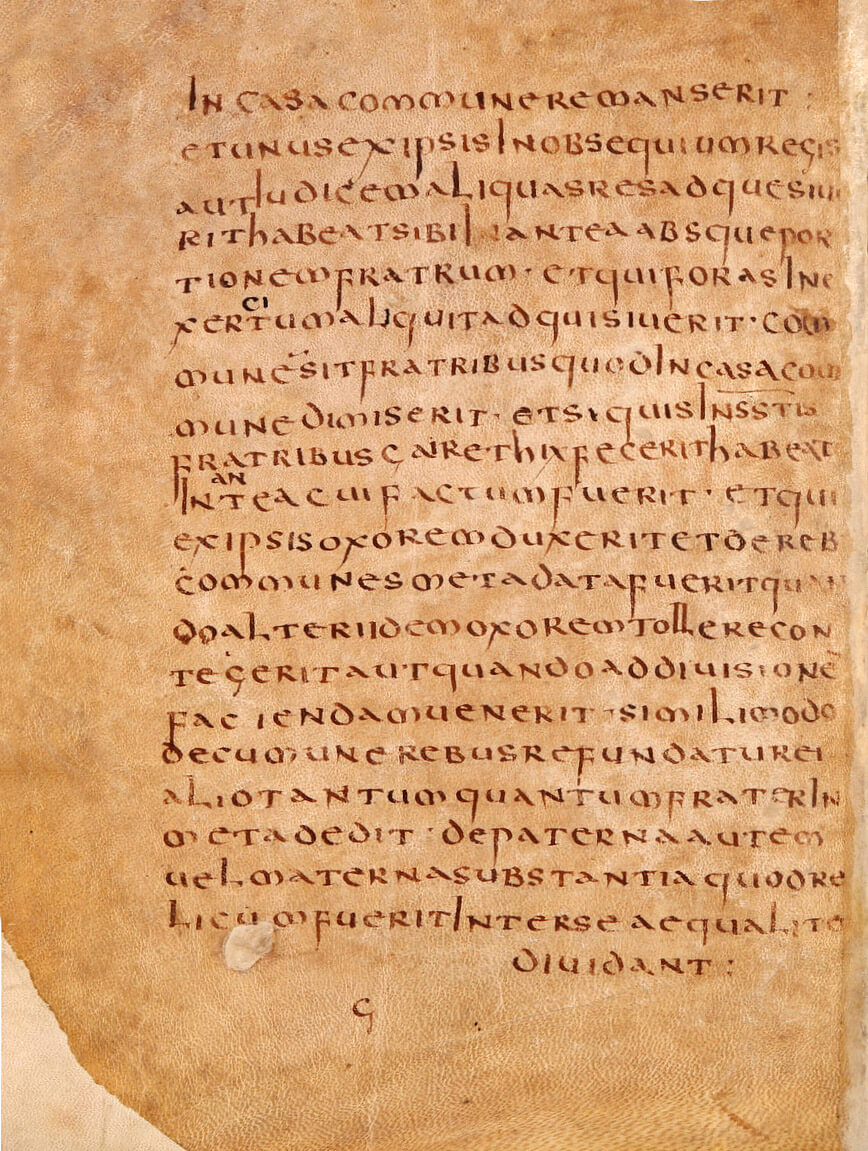 IN CASA COMMUNE REMANSERIT :
ET UNUS EX IPSIS IN OBSEQUIUM REGIS
AUT IUDICEM ALIQUAS RES ADQUESIUI
RIT HABEAT SIBI IANTEA ABSQUE POR
TIONEM FRATRUM · ET QUI FORAS IN E
CI
XERTUM ALIQUIT ADQUISIUERIT · COM
MUNE SIT FRATRIBUS QUOD IN CASA COM
MUNE DIMISERIT · ET SI QUIS IN SSTIS
FRATRIBUS GAIRETHIX FECERIT HABEAT
AN
INTEA CUI FACTUM FUERIT · ET QUI
EX IPSIS OXOREM DUXERIT ET DE REB
COMMUNES META DATA FUERIT QUAN
DO ALTERI IDEM OXOREM TOLLERE CON
TEGERIT AUT QUANDO AD DIUISIONE
FACIENDAM UENERIT · SIMILI MODO
DE CUMUNE REBUS REFUNDATUR EI
ALIO TANTUM QUANTUM FRATER IN
META DEDIT · DE PATERNA AUTEM
UEL MATERNA SUBSTANTIA QUOD RE
LICUM FUERIT INTER SE AEQUALITE
DIUIDANT :
G